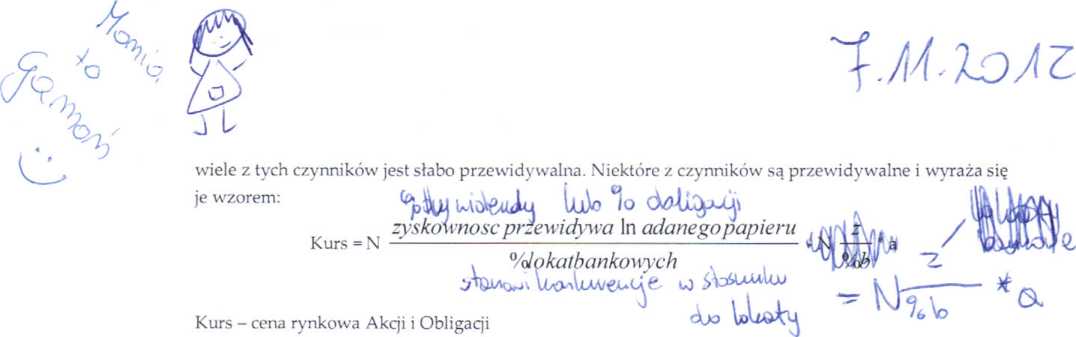 Monia
to
Gamoń
7.11.2012
wiele z tych czynników jest słabo przewidywalna. Niektóre z czynników są przewidywalne i wyraża się
je wzorem:
lub % obligacji
Kurs = N zyskownosc przewidywa ln adanego papieru
%lokatbankowych
stanowi konkurencje w stosunku
do lokaty
= N z / %b * a
Kurs – cena rynkowa Akcji i Obligacji